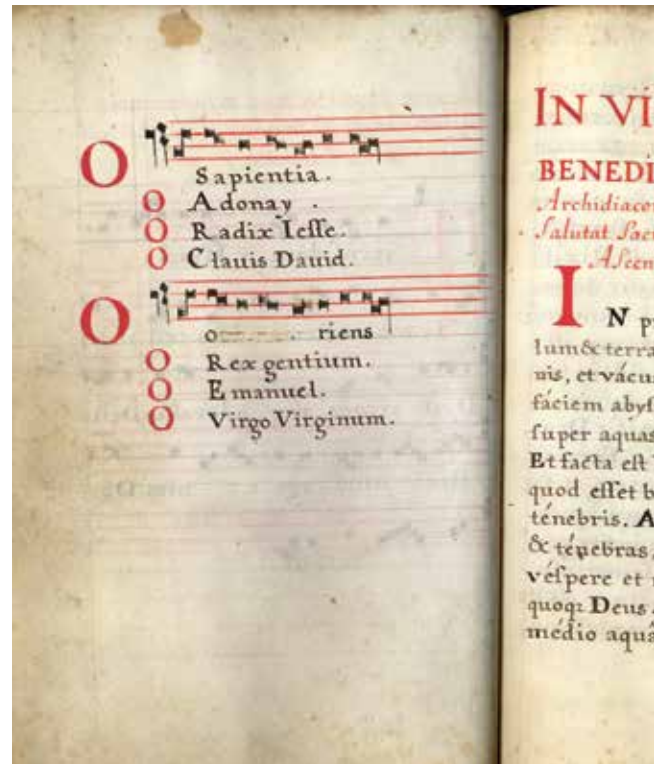 O Sapientia.
O Adonay .
O Radix Iesse.
O Clauis Dauid.
O o riens
O Rex gentium.
O Emanuel.
O Virgo Virginum.
IN VI
BENEDI
Archidiaco
Salutat Sac
Ascen
IN p
lum & terra
nis, et vácu
fáciem abys
super aquas
Et facta est
quod esset b
ténebris. A
& ténebras,
véspere et
quoqz Deus.
médio aquá